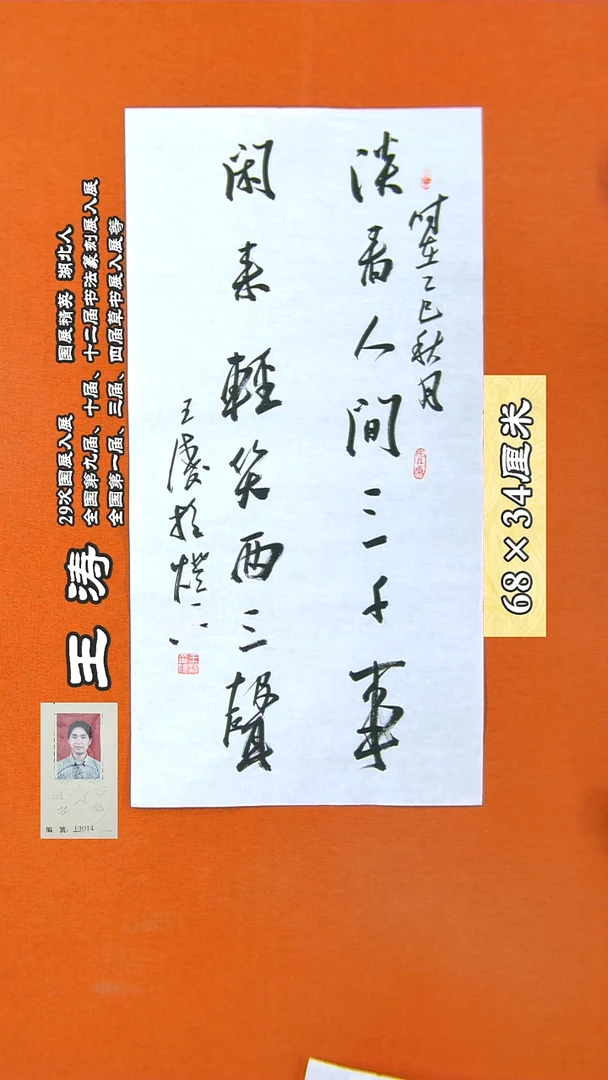 時在乙巳秋月
淡看人間三千事
闲来輕笑两三聲
王涛
29次国展入展 国展精英 湖北人
全国第九届、十届、十二届书法篆刻展入展
全国第一届、三届、四届草书展入展等
王涛
68×34厘米
编 号：12014